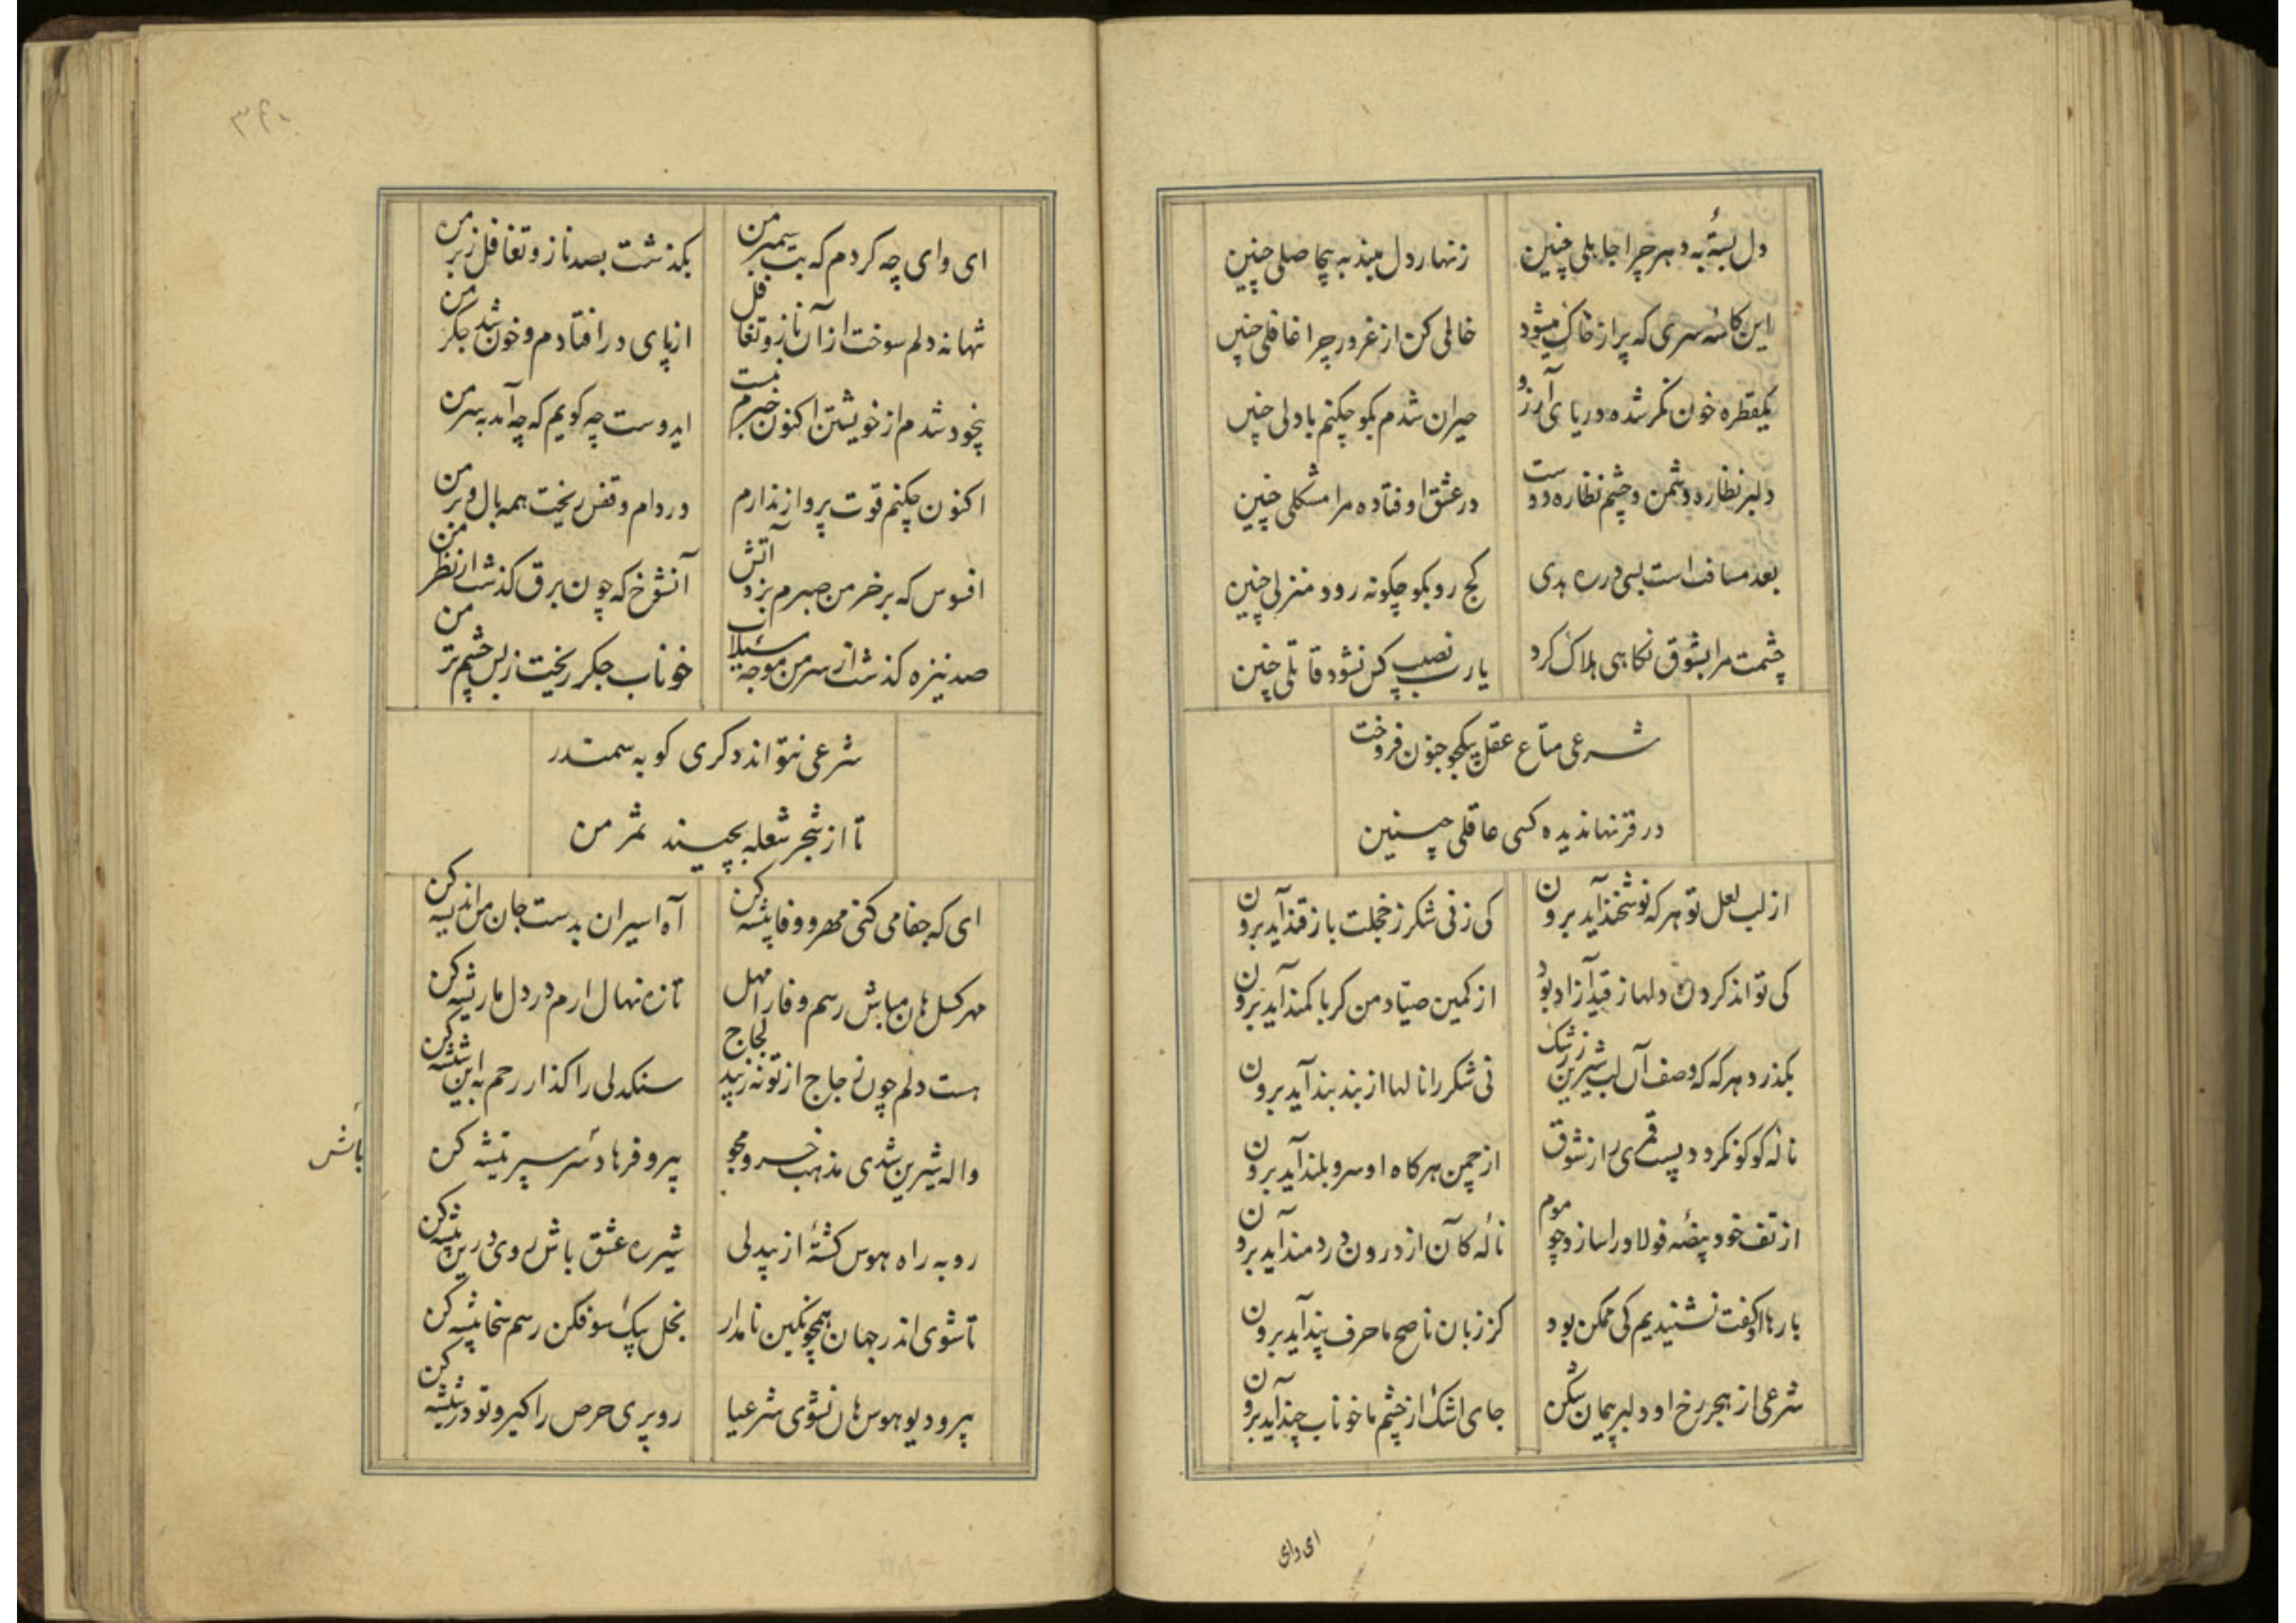 دل بستهٔ به دهر چرا جاهلی چنین
زنهار دل مبند به بیحاصلی چنین
این کاسهٔ سری که پر از خاک میشود
خالی کن از غرور چرا غافلی چنین
یکقطره خون نکر شده دریای آرزو
حیران شدم بکو چکنم با دلی چنین
دلبر نظاره دشمن و چشم نظاره دوست
در عشق اوفتاده مرا مشکلی چنین
بعد مسافت است بسی در ره بدی
کج رو بکو چکونه رود منزلی چنین
چشمت مرا بشوق نکاهی هلاک کرد
یا رب نصیب کس نشود قاتلی چنین
شرعی متاع عقل بیکجو جنون فروخت
در قرنها ندیده کسی عاقلی چنین
از لب لعل تو هر که نوشخند آید برون
کی ز نی شکر ز خجلت باز قند آید برون
کی تواند کردن دلها ز قید آزاد بود
از کمین صیاد من کر با کمند آید برون
بکذرد هر که که وصف آن لب شیرین ز شک
نی شکر را نالها از بند بند آید برون
نالهٔ کوکو نکردد پست قمری را ز شوق
از چمن هر کاه او سرو بلند آید برون
از تف خود بیضهٔ فولاد را سازد چو موم
نالهٔ کآن از درون دردمند آید برون
بارها او کفت نشنیدیم کی ممکن بود
کز زبان ناصح ما حرف پند آید برون
شرعی از هجر رخ او دلبر پیمان شکن
جای اشک از چشم ما خوناب چند آید برون
ای وای
۳۴۰
ای وای چه کردم که بت سیمبر من
بکذشت بصد ناز و تغافل ز بر من
تنها نه دلم سوخت از آن ناز و تغافل
از پای در افتادم و خون شد جکر من
بیخود شدم از خویشتن اکنون خبرم نیست
ایدوست چه کویم که چه آمد بسر من
اکنون چکنم قوت پرواز ندارم
در دام و قفس ریخت همه بال و پر من
افسوس که بر خرمن صبرم بزد آتش
آنشوخ که چون برق کذشت از نظر من
صد نیزه کذشت از سر من موجهٔ سیلاب
خوناب جکر ریخت ز بس چشم تر من
شرعی نتواند دکری کو به سمندر
تا از شجر شعله بچیند ثمر من
ای که جفا می کنی مهر و وفا پیشه کن
آه اسیران بدست جان من اندیشه کن
مهر کسل هان مباش رسم وفا را مهل
تازه نهال ارم در دل ما ریشه کن
هست دلم چون زجاج از تو نه زیبد لجاج
سنکدلی را کذار رحم به این شیشه کن
واله شیرین شدی مذهب خسرو مجو
پیرو فرهاد سر سپر تیشه کن
باش
رو به راه هوس کشتهٔ از بیدلی
شیر ره عشق باش روی درین بیشه کن
تا شوی اندر جهان همچو نکین نامدار
بخل بیک سو فکن رسم سخا پیشه کن
پیرو دیو هوس هان نشوی شرعیا
رو پری حرص را کیر و تو در شیشه کن